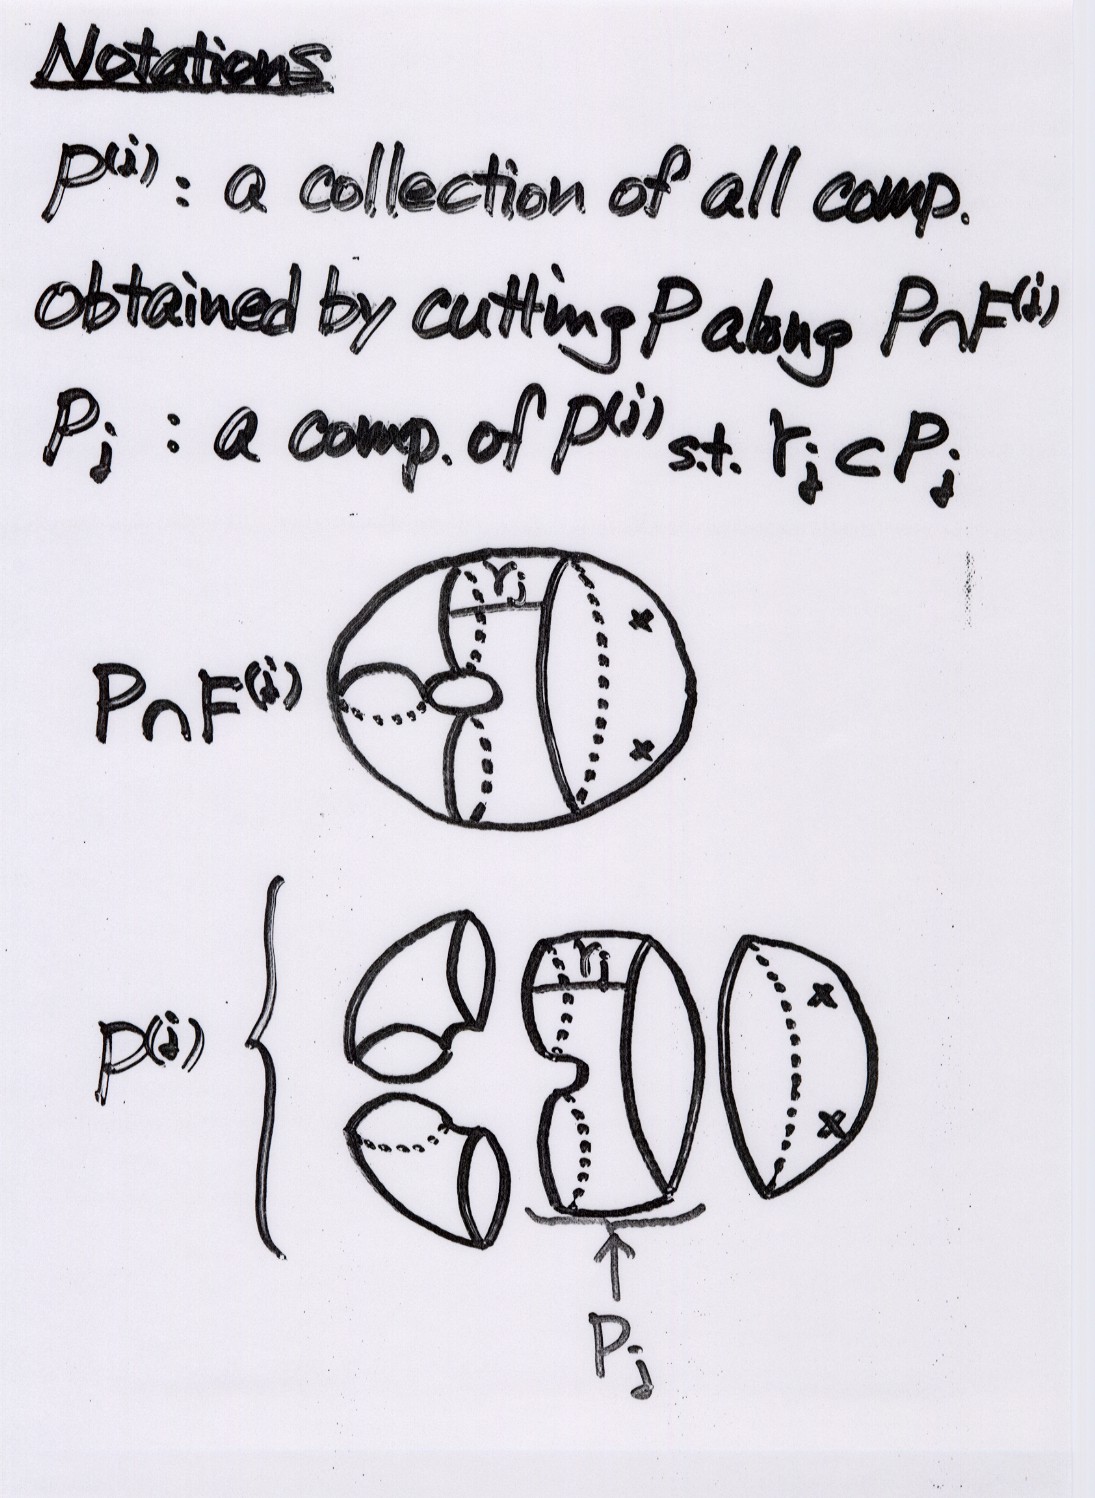 Notations
P^(j) : a collection of all comp.
obtained by cutting P along P∩F^(j)
P_j : a comp. of P^(j) s.t. γ_j ⊂ P_j
γ_j
× 
P∩F^(j)
×
γ_j
×
P^(j)
×
P_j